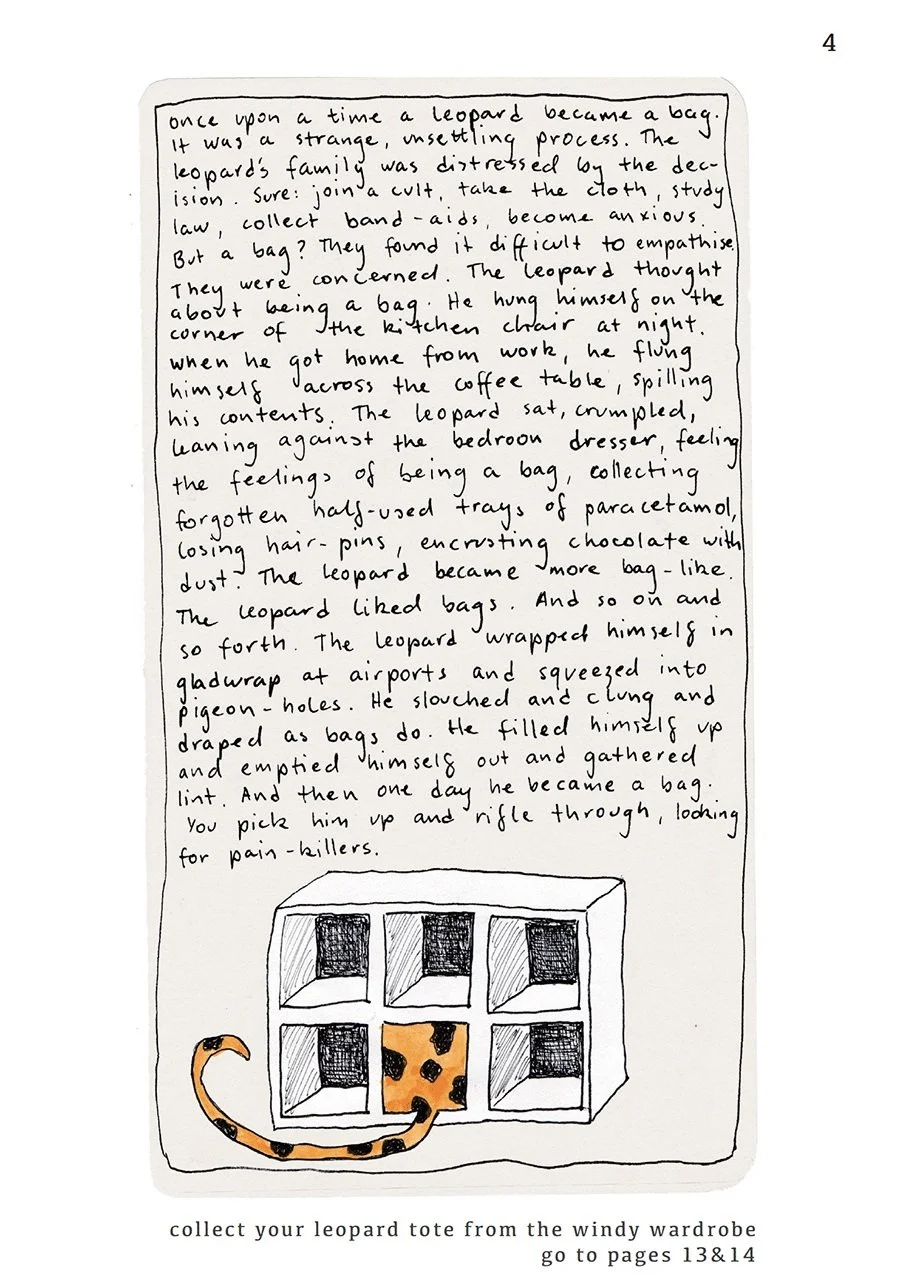 4
once upon a time a leopard became a bag.
It was a strange, unsettling process. The
leopard's family was distressed by the dec-
ision. Sure: join a cult, take the cloth, study
law, collect band-aids, become anxious.
But a bag? They found it difficult to empathise.
They were concerned. The leopard thought
about being a bag. He hung himself on the
corner of the kitchen chair at night.
when he got home from work, he flung
himself across the coffee table, spilling
his contents. The leopard sat, crumpled,
leaning against the bedroom dresser, feeling
the feelings of being a bag, collecting
forgotten half-used trays of paracetamol,
losing hair-pins, encrusting chocolate with
dust. The leopard became more bag-like.
The leopard liked bags. And so on and
so forth. The leopard wrapped himself in
gladwrap at airports and squeezed into
pigeon-holes. He slouched and clung and
draped as bags do. He filled himself up
and emptied himself out and gathered
lint. And then one day he became a bag.
You pick him up and rifle through, looking
for pain-killers.
collect your leopard tote from the windy wardrobe
go to pages 13&14